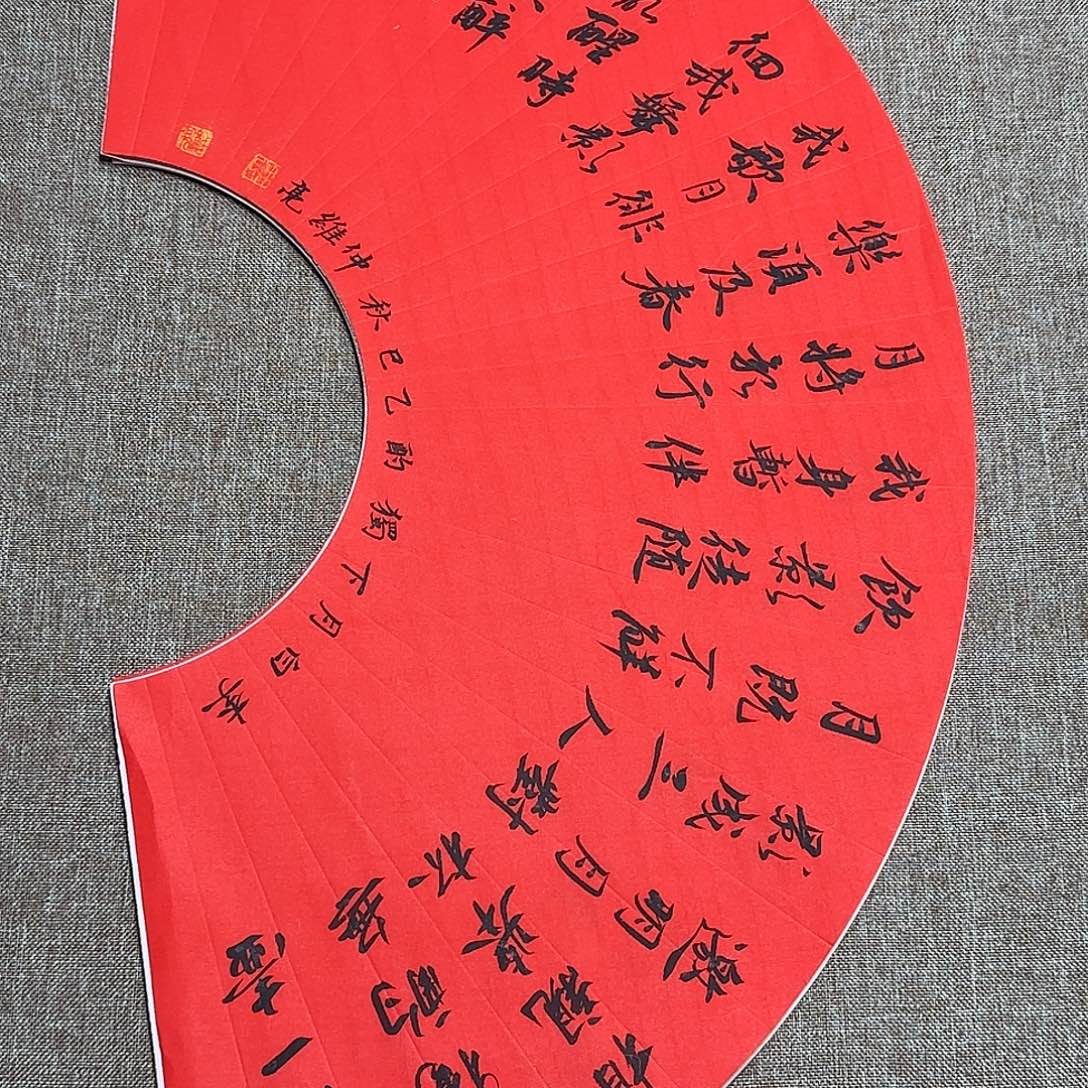 一壺
獨酌無
相親舉杯
邀明月對
影成三人
月既不解
飲影徒隨
我身暫伴
月將影行
樂須及春
我歌月徘
徊我舞影
亂醒時
醉
李白月下獨酌乙巳秋仲維亮